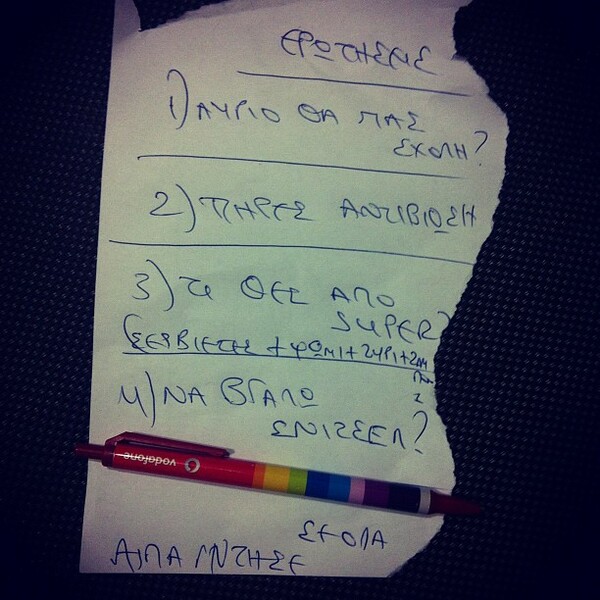 ΕΡΩΤΗΣΕΙΣ
1) ΑΥΡΙΟ ΘΑ ΠΑΣ
ΣΧΟΛΗ?
2) ΠΗΡΕΣ ΑΝΤΙΒΙΩΣΗ
3) ΤΙ ΘΕΣ ΑΠΟ
SUPER?
(ΣΕΡΒΙΕΤΕΣ + ΨΩΜΙ + ΤΥΡΙ +
4) ΝΑ ΒΓΑΛΩ
ΣΝΙΤΣΕΛ?
vodafone
ΣΕ ΟΛΑ
ΑΠΑΝΤΗΣΕ